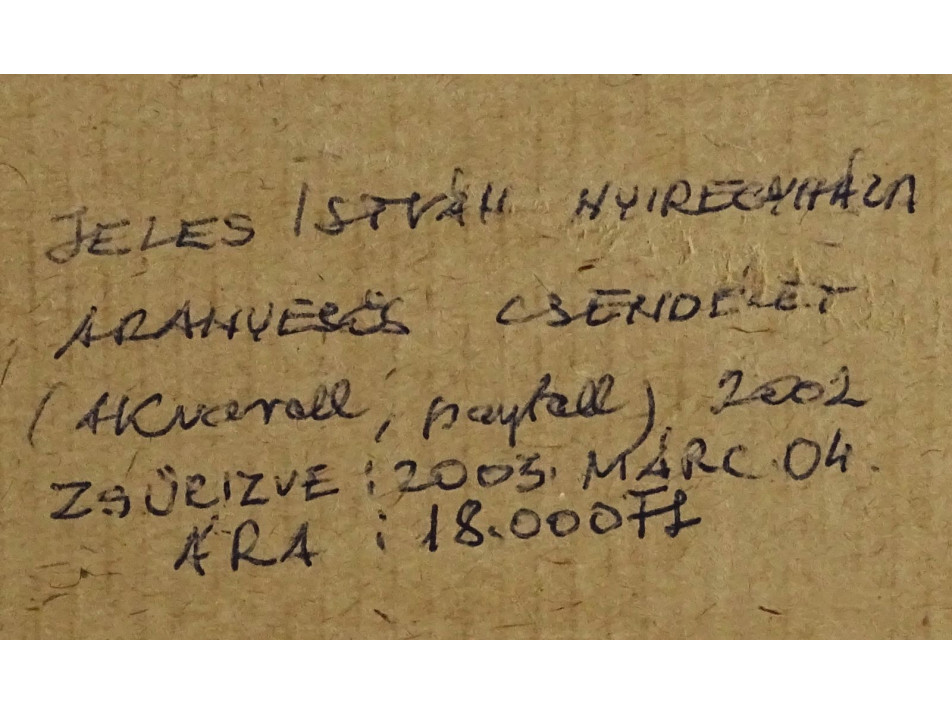 JELES ISTVÁN NYIREGYHÁZA
ARANYESŐS CSENDÉLET
(AKvarell, pasztell) 2002
ZSŰRIZVE: 2003. MÁRC. 04.
ÁRA: 18.000Ft